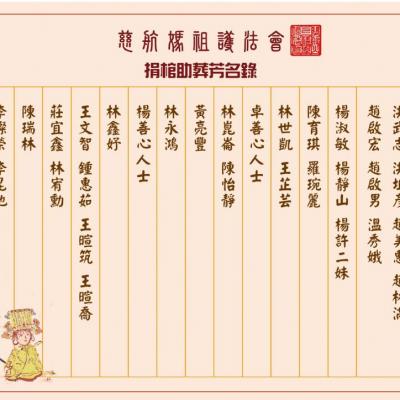 慈航媽祖護法會
捐棺助葬芳名錄
趙啟宏 趙啟男 溫秀娥
楊淑敏 楊靜山 楊許二妹
陳育琪 羅琬麗
林世凱 王芷芸
卓善心人士
林崑崙 陳怡靜
黃亮豐
林永鴻
楊善心人士
林鑫妤
王文智 鍾惠茹 王暄筑 王暄喬
莊宜鑫 林宥勳
陳瑞林